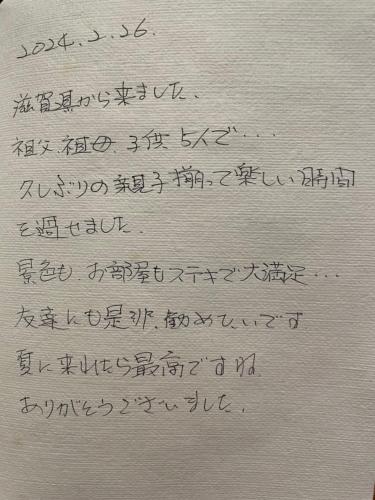 2024.2.26.
滋賀県から来ました.
祖父.祖母.子供 5人で・・・
久しぶりの親子揃って楽しい時間
を過せました.
景色も.お部屋もステキで大満足・・・
友達にも是非.勧めたいです
夏に来れたら最高ですね
ありがとうございました.